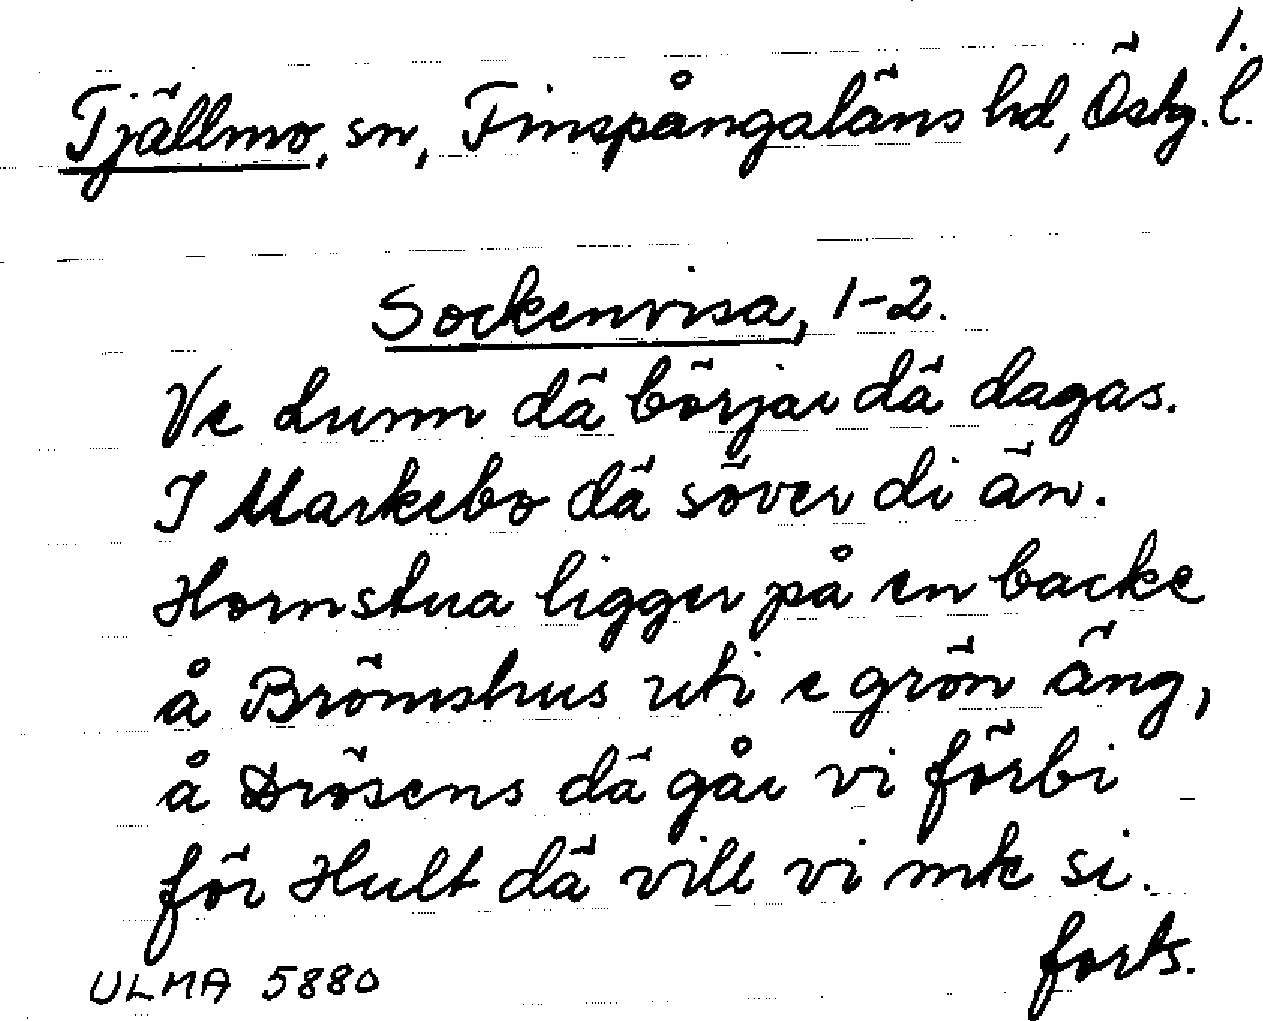 1.
Tjällmo, sn, Finspångaläns hd, Östg. l.
Sockenvisa, 1-2.
Ve Lunm dä börjar dä dagas.
I Markebo dä söver di än.
Hornstua ligger på en backe
å Brömshus uti e grön äng,
å Drösens dä går vi förbi
för Hult dä vill vi nte si.
forts.
ULMA 5880